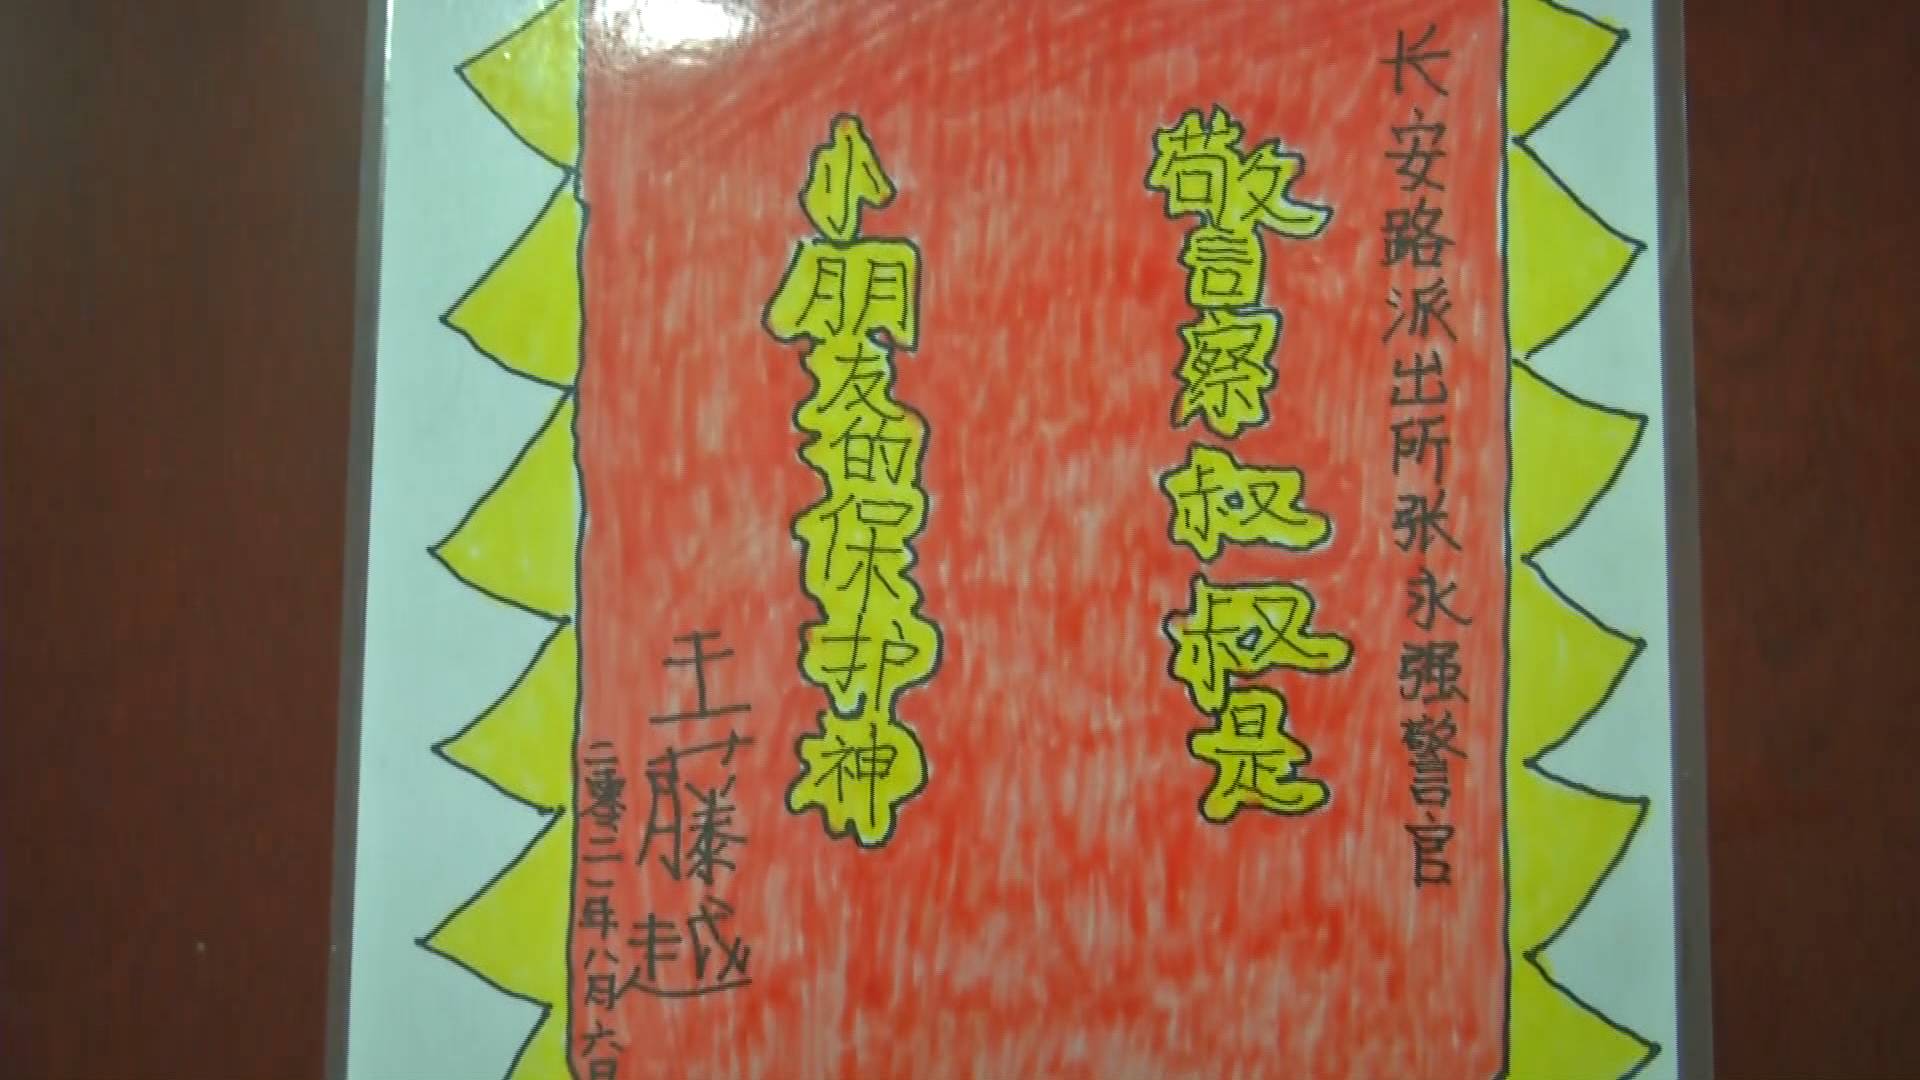 长安路派出所张永强警官
警察叔叔是
小朋友的保护神
王藤越
二零二一年八月六日